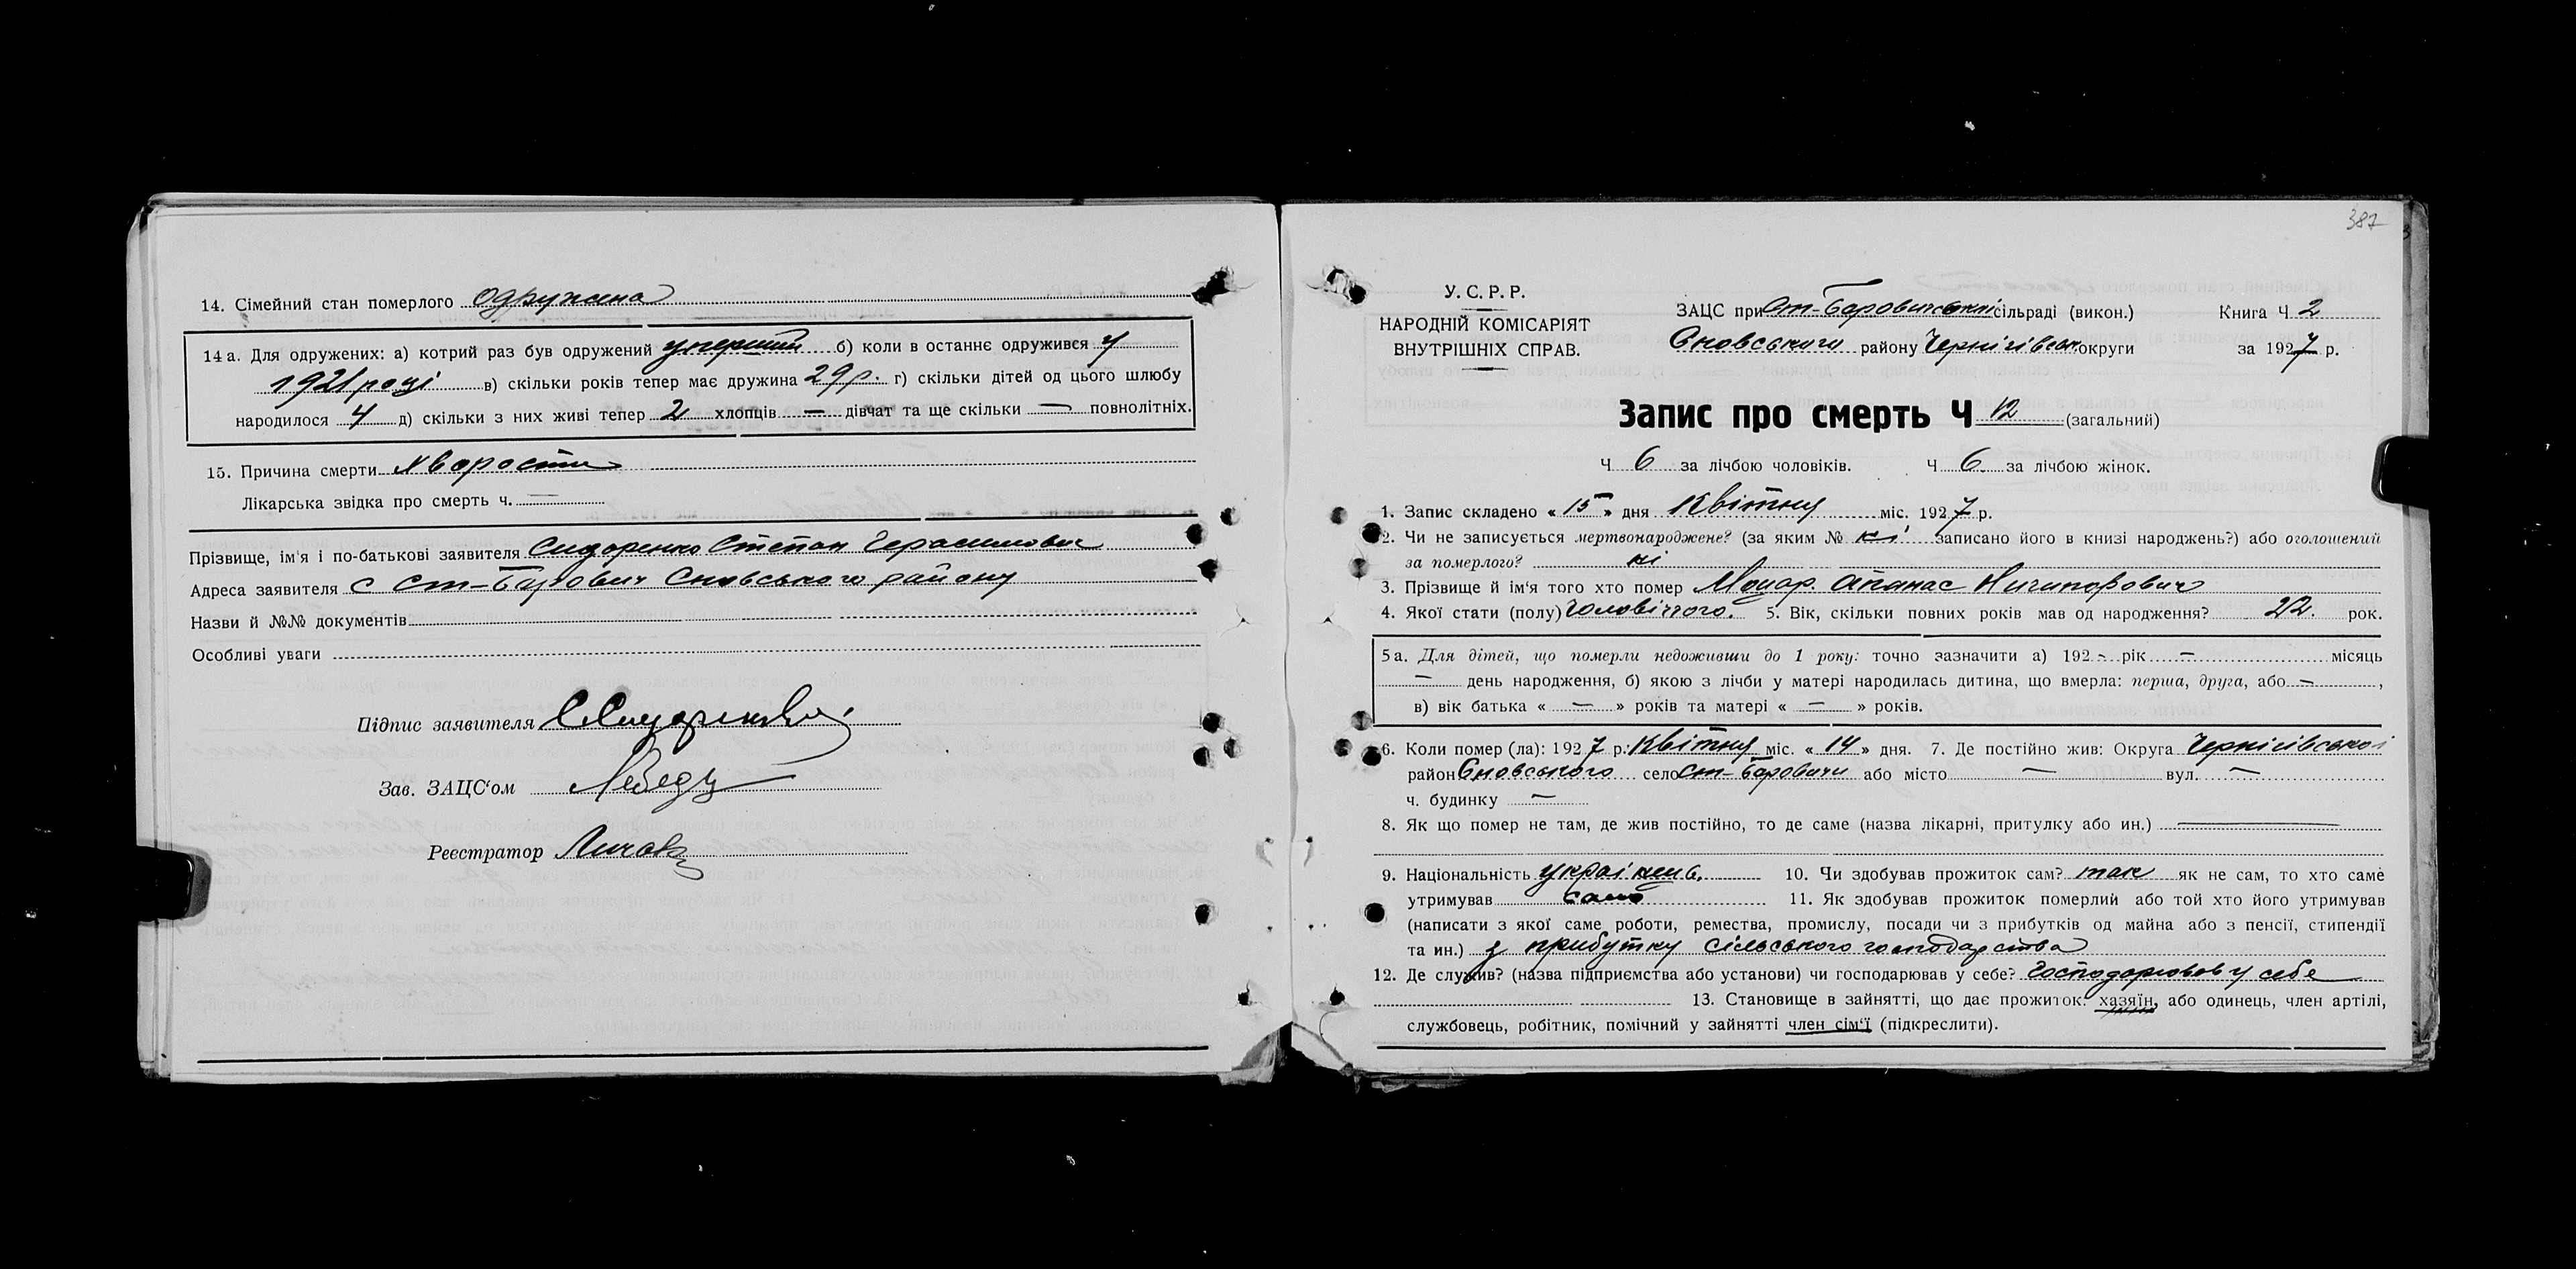 14. Сімейний стан померлого одружена
14 а. Для одружених: а) котрий раз був одружений уперший б) коли в останнє одружився у
1921 році в) скільки років тепер має дружина 29 р. г) скільки дітей од цього шлюбу
народилося 4 д) скільки з них живі тепер 2 хлопців — дівчат та ще скільки — повнолітніх.
15. Причина смерти хворости
Лікарська звідка про смерть ч. —
Прізвище, ім'я і по-батькові заявителя Сидоренко Степан Герасимович
Адреса заявителя с Ст-Баровичі Сновського району
Назви й №№ документів
Особливі уваги
Підпис заявителя
Зав. ЗАЦС'ом
Реєстратор
387
У. С. Р. Р.
НАРОДНІЙ КОМІСАРІЯТ
ВНУТРІШНІХ СПРАВ.
ЗАЦС при Ст-Баровицькій сільраді (викон.) Книга Ч 2
Сновського району Чернігівськ округи за 1927 р.
Запис про смерть Ч 12 (загальний)
Ч 6 за лічбою чоловіків. Ч 6 за лічбою жінок.
1. Запис складено « 15 » дня Квітня міс. 1927 р.
2. Чи не записується мертвонароджене? (за яким № ні записано його в книзі народжень?) або оголошений
за померлого? ні
3. Прізвище й ім'я того хто помер Апанас Ничипорович
4. Якої стати (полу) Чоловічого. 5. Вік, скільки повних років мав од народження? 22. рок.
5 а. Для дітей, що померли недоживши до 1 року: точно зазначити а) 192 - рік — місяць
— день народження, б) якою з лічби у матері народилась дитина, що вмерла: перша, друга, або — ,
в) вік батька « — » років та матері « — » років.
6. Коли помер (ла): 1927 р. Квітня міс. « 14 » дня. 7. Де постійно жив: Округа Чернігівської
район Сновського село Ст-Баровичи або місто — вул. —
ч. будинку —
8. Як що помер не там, де жив постійно, то де саме (назва лікарні, притулку або ин.) —
9. Національність українець. 10. Чи здобував прожиток сам? так як не сам, то хто саме
утримував само 11. Як здобував прожиток померлий або той хто його утримував
(написати з якої саме роботи, ремества, промислу, посади чи з прибутків од майна або з пенсії, стипендії
та ин.) з прибутку сільського господарства
12. Де служив? (назва підприємства або установи) чи господарював у себе? Господарював у себе
13. Становище в зайнятті, що дає прожиток: хазяїн, або одинець, член артілі,
службовець, робітник, помічний у зайнятті член сім'ї (підкреслити).